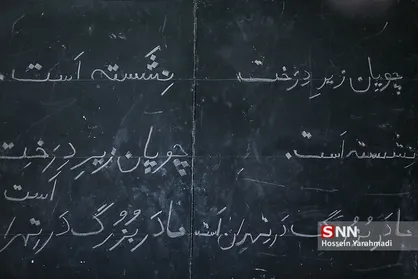 چوپان زیرِ دِرَخت نِشَسته اَست.
نِشَسته اَست.
چوپان زیرِ دِرَختِ
اَست
مادَر بُزُرگ دَر تِهران اَست
مادَر بُزُرگ دَر تِهرا
SNN
Hossein Yarahmadi